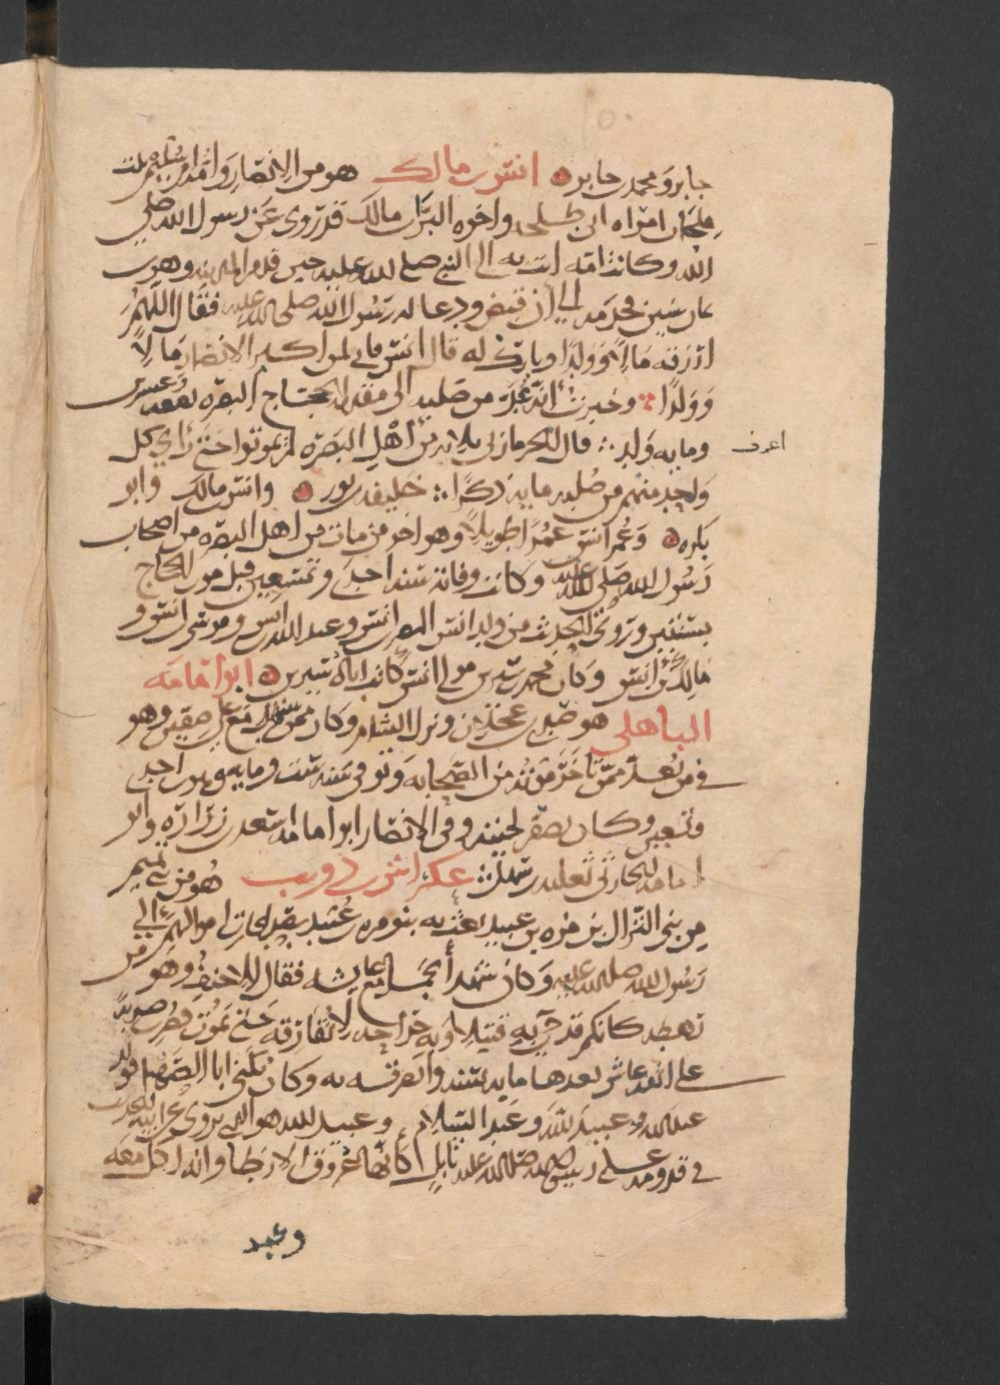 جابر ومحمد بن جابر ۞ انس بن مالك هو من الانصار وامه ام سليم بنت
ملحان امراه ابي طلحه واخوه البرا بن مالك قد روى عن رسول الله صلى
الله وكانت امه اتت به الى النبي صلى الله عليه حين قدم المدينه وهو بن
ثمان سنين فخدمه الى ان قبض ودعا له رسول الله صلى الله عليه فقال اللهم
ارزقه مالا وولدا وبارك له قال انس فاني لمن اكثر الانصار مالا
وولدا وخبرت انه قدم من صلبه الى مقدم الحجاج البصره بضعه وعشرين
ومايه ولد ∴ قال الحرمازي ثلاثه من اهل البصره لم يموتوا حتى راي كل
واحد منهم من صلبه مايه ذكرا ∴ خليفه بن بدر ۞ وانس بن مالك وابو
بكره ۞ وعمر انس عمرا طويلا وهو اخر من مات من اهل البصره من اصحاب
رسول الله صلى الله عليه وكانت وفاته سنه احدى وتسعين قبل موت الحجاج
بسنتين وروى الحديث من ولد انس النضر بن انس وعبد الله بن انس وموسى بن انس و
مالك بن انس وكان محمد بن سيرين مولى انس كاتب اباه سيرين ۞ ابو امامه
الباهلي هو صدي بن عجلان ونزل الشام وكان ممن شهد مع علي صفين وهو
في من يعد ممن تاخر موته من الصحابه وتوفي سنه ست وثمانين وهو بن احدى
وتسعين وكان يصفر لحيته وفي الانصار ابو امامه اسعد بن زراره وابو
امامه الحارثي ثعلبه بن سهل ∴ عكراش بن ذويب هو من بني تميم
من بني النزال بن مره بن عبيد بعث به بنو مره بن عبيد بصدقات اموالهم الى
رسول الله صلى الله عليه وكان شهد الجمل مع عايشه فقال الاحنف وهو من
رهطه كانكم قد جي به قتيلا او به جراحه لا تفارقه حتى يموت فضرب ضربة
على انفه عاش بعدها مايه سنه واثر الضربه به وكان يكنى ابا الصهبا فولد
عبد الله وعبيد الله وعبد السلام وعبيد الله هو الذي يروي عن ابيه الحديث
في قدومه على رسول الله صلى الله عليه بابل كانها عروق الارطا وانه اكل معه
وعبد
اعرف